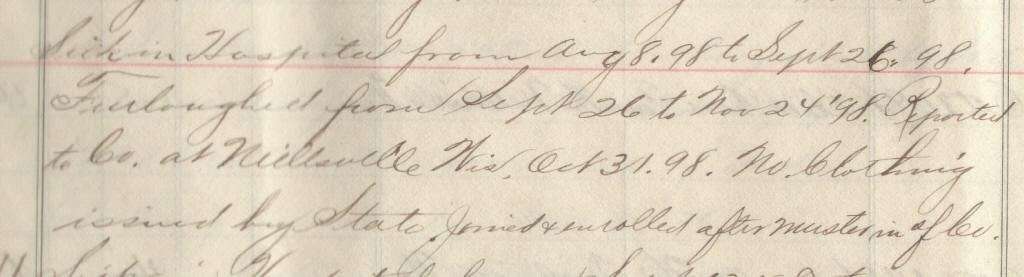 Sick in Hospital from Aug 8. 98 to Sept 26. 98.
Furloughed from Sept 26 to Nov 24 '98. Reported
to Co. at Neillsville Wis. Oct 31. 98. No. Clothing
issued by State. Joined & enrolled after muster in of Co.
Sick in Hospital from Sept